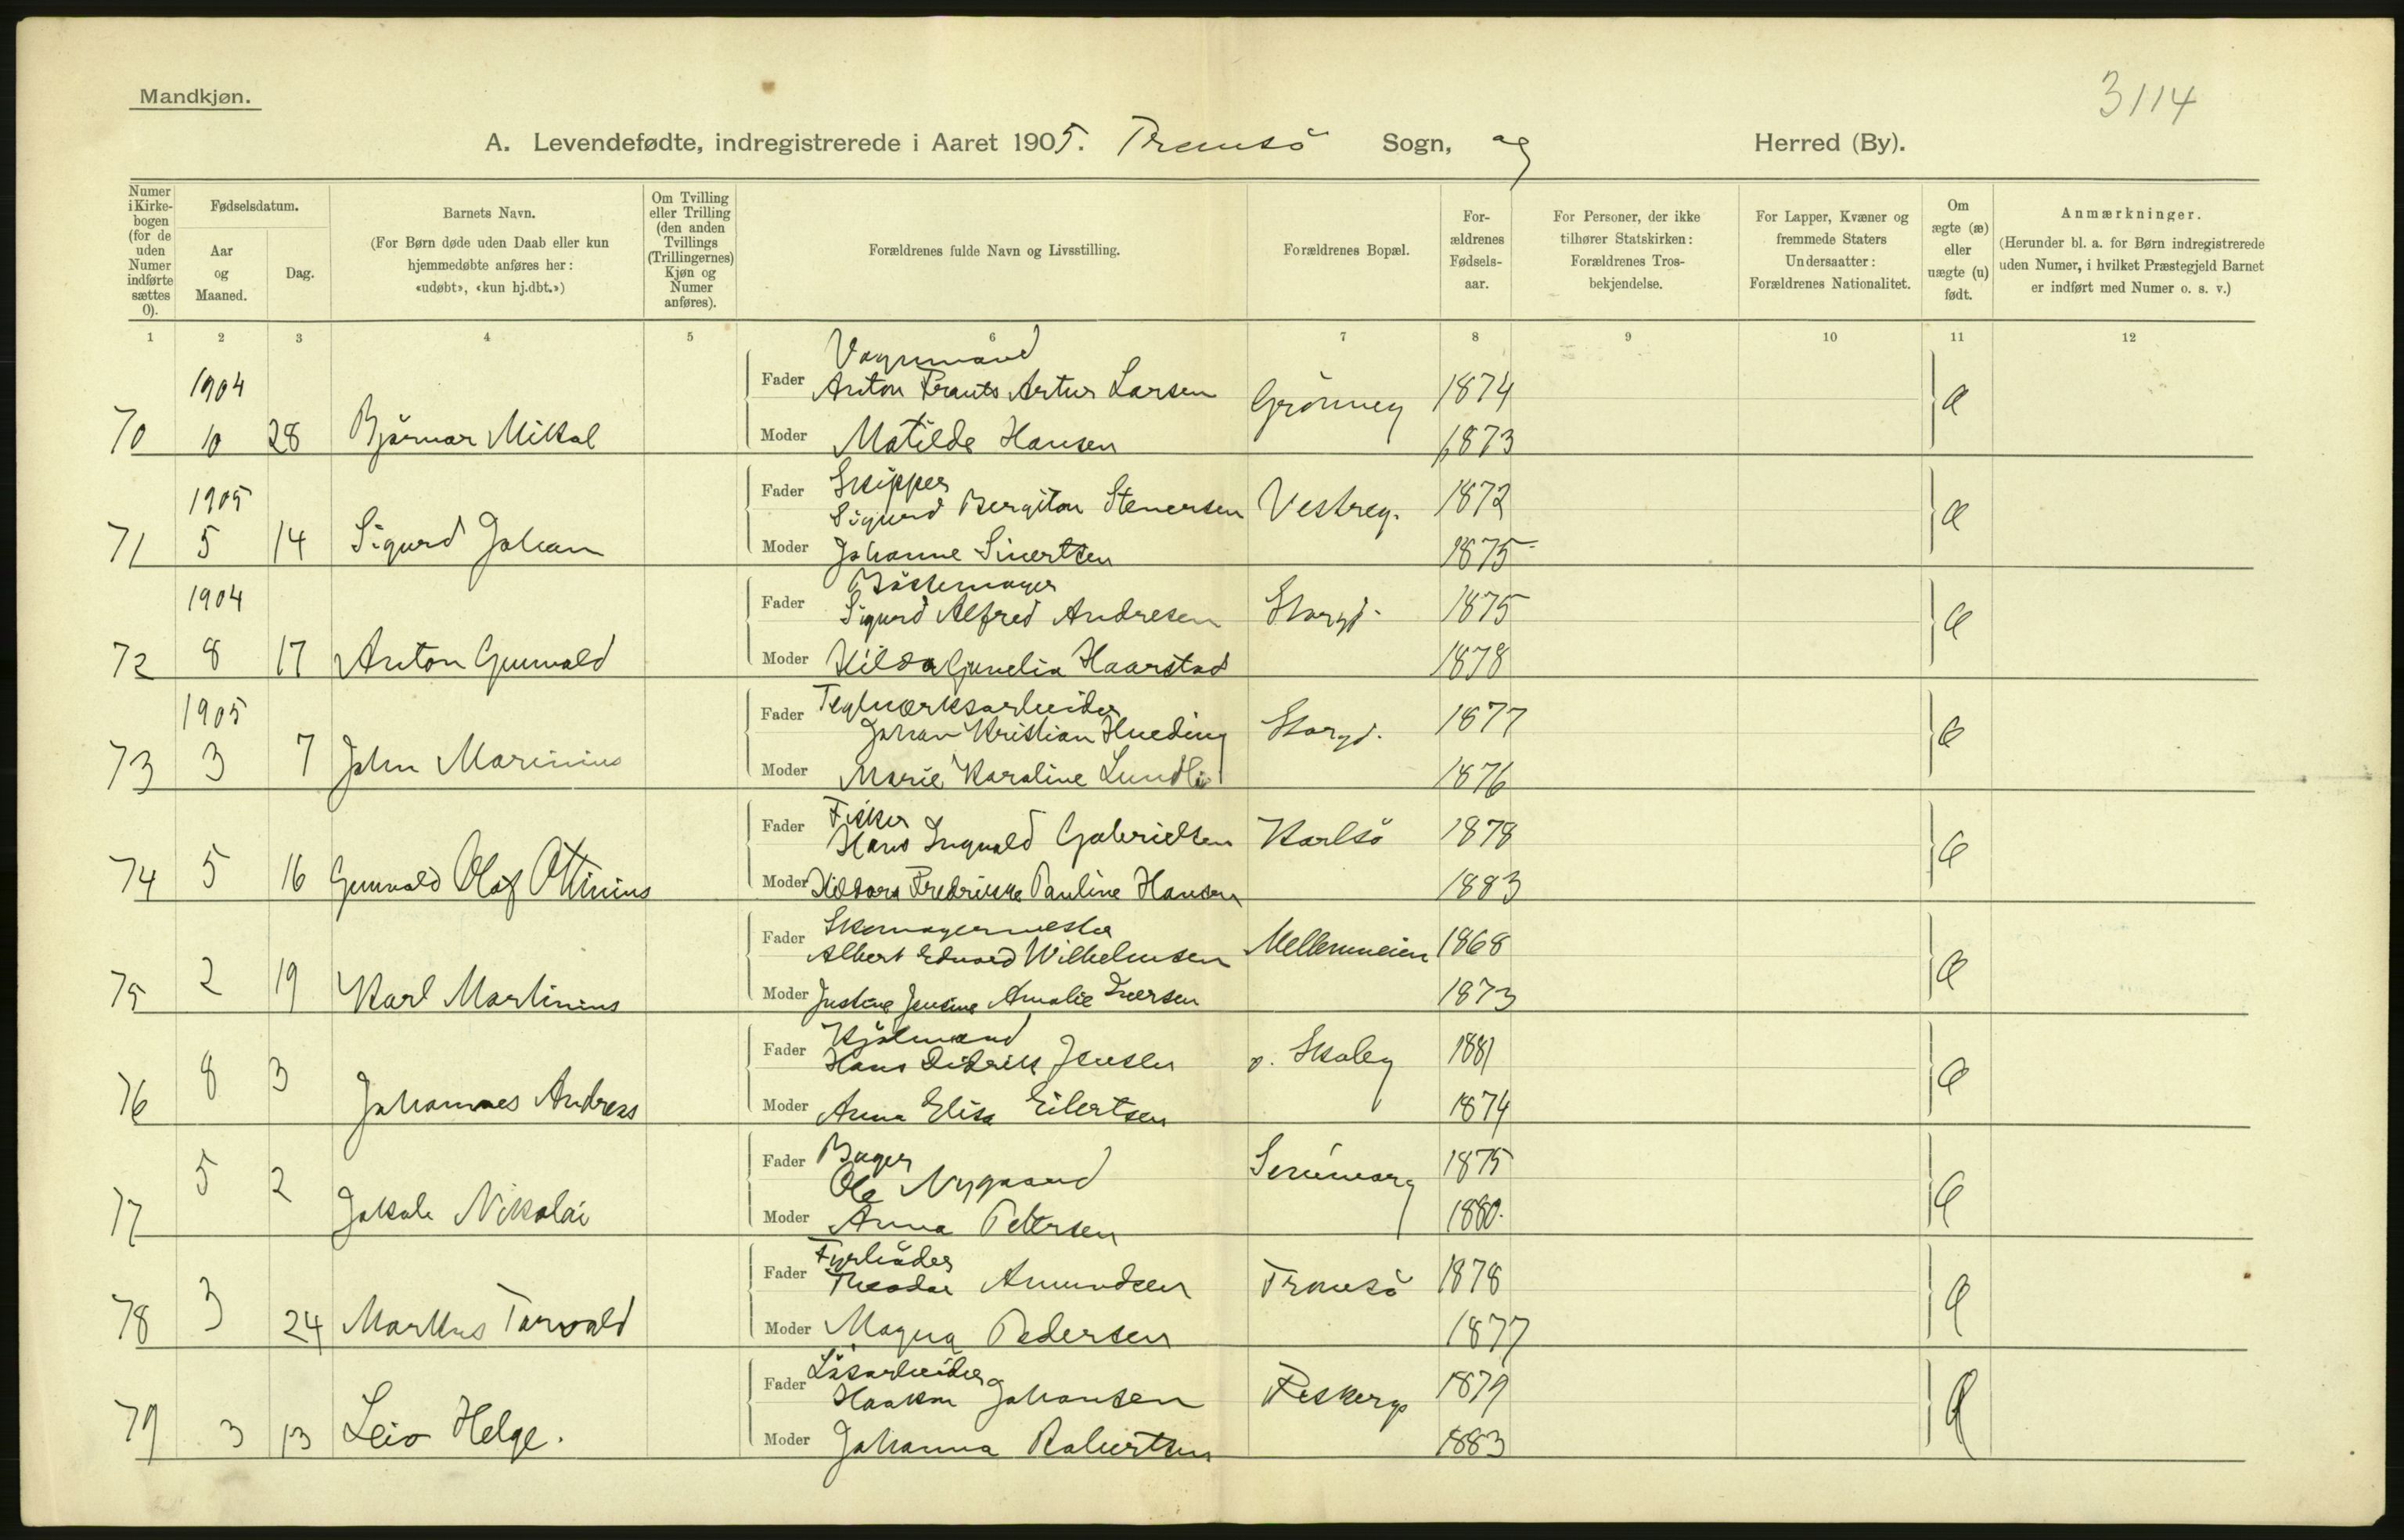 Mandkjøn.
3114
A. Levendefødte, indregistrerede i Aaret 1905. Tromsö Sogn, og Herred (By).
Numer i Kirkebogen (for de uden Numer indførte sættes 0).
Fødselsdatum.
Aar og Maaned.
Dag.
Barnets Navn.
(For Børn døde uden Daab eller kun hjemmedøbte anføres her: «udøbt», «kun hj.dbt.»)
Om Tvilling eller Trilling (den anden Tvillings (Trillingernes) Kjøn og Numer anføres).
Forældrenes fulde Navn og Livsstilling.
Forældrenes Bopæl.
Forældrenes Fødselsaar.
For Personer, der ikke tilhører Statskirken: Forældrenes Trosbekjendelse.
For Lapper, Kvæner og fremmede Staters Undersaatter: Forældrenes Nationalitet.
Om ægte (æ) eller uægte (u) født.
Anmærkninger.
(Herunder bl. a. for Børn indregistrerede uden Numer, i hvilket Præstegjeld Barnet er indført med Numer o. s. v.)
1 2 3 4 5 6 7 8 9 10 11 12
1904
Vognmand
Fader Anton Frants Artur Larsen Grönneg 1874 æ
70 10 28 Bjarnar Mikal
Moder Matilde Hansen 1873
1905
Fader Skipper
Sigurd Bergiton Stenersen Vestreg. 1872 æ
71 5 14 Sigurd Johan
Moder Johanne Sivertsen 1875
1904
Bössemager
Fader Sigurd Alfred Andresen Storgd. 1875 æ
72 8 17 Anton Gunvald
Moder Hilda Haarstad 1878
1905
Fader Teglværksarbeider
Johan Kristian Hveding Storgd. 1877 æ
73 3 7 John Marinius
Moder Marie Karoline Lundli 1876
Fader Fisker
Hans Ingvald Gabrielsen Karlsö 1878 æ
74 5 16 Gunvald Olaf Ottinius
Moder Fredrikke Pauline Hansen 1883
Fader Skomagermester
Albert Edvard Wilhelmsen Mellemveien 1868 æ
75 2 19 Karl Martinius
Moder Justine Jensine Amalie Iversen 1873
Fader
Hans Didrik Jensen v. Skoleg 1881 æ
76 8 3 Johannes Andreas
Moder Anna Elisa Eilertsen 1874
Fader Bager
Ole Nygaard 1875 æ
77 5 2 Jakob Nikolai
Moder Anna Pettersen 1880.
Fader Fyrböder
Theodor Amundsen Tromsö 1878 æ
78 3 24 Markus Torvald
Moder Magna Pedersen 1877
Fader Lösarbeider
Haakon Johansen Fiskerg 1879 æ
79 3 13 Leiv Helge.
Moder Johanna Robertsen 1883